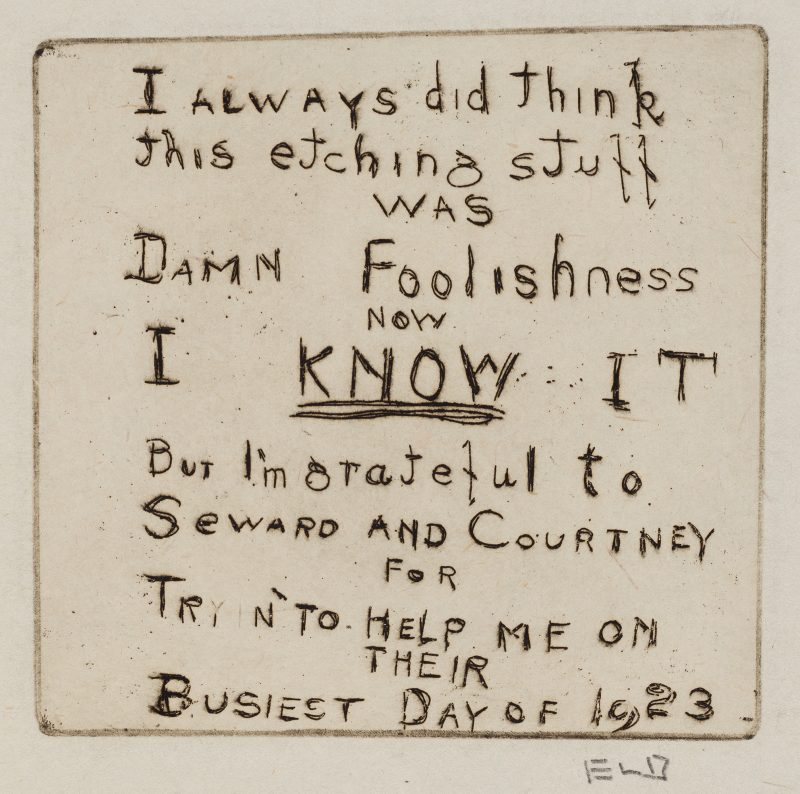 I ALWAYS did think
this etching stuff
WAS
DAMN Foolishness
NOW
I KNOW IT
BUT I'm grateful to
SEWARD AND COURTNEY
FOR
TRYIN' TO HELP ME ON
THEIR
BUSIEST DAY OF 1923